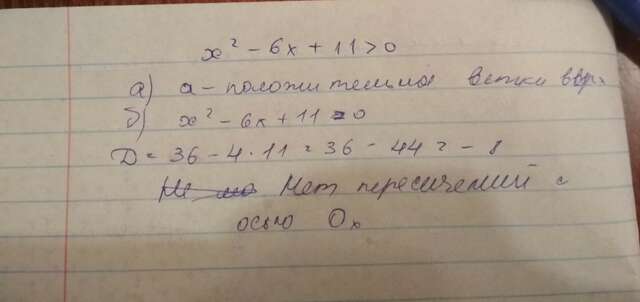 x² - 6x + 11 > 0
а) а - положительна ветки вверх
б) x² - 6x + 11 = 0
D = 36 - 4 · 11 = 36 - 44 = - 8
Нет пересечений с
осью Ox